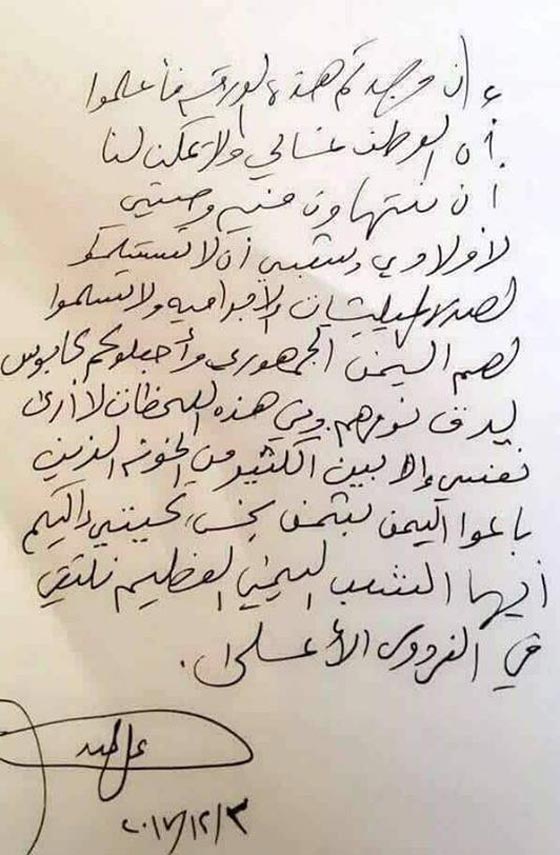 إن وجدتم هذه الورقة فأعلموا
أن الوطن غالي ولا يمكن لنا
أن نتهاون فيه وصيتي
لأولادي وشعبي أن لا تستسلموا
لهذه المليشيات الإجرامية ولا تسلموا
لهم اليمن الجمهوري وأجعلوكم كابوس
يدق نومهم وفي هذه اللحظات لا أرى
نفسي إلا بين الكثير من الخونة الذين
باعوا اليمن بثمن بخس، تحيتي إليكم
أيها الشعب اليمني العظيم نلتقي
في الفردوس الأعلى.
٢٠١٧/١٢/٣